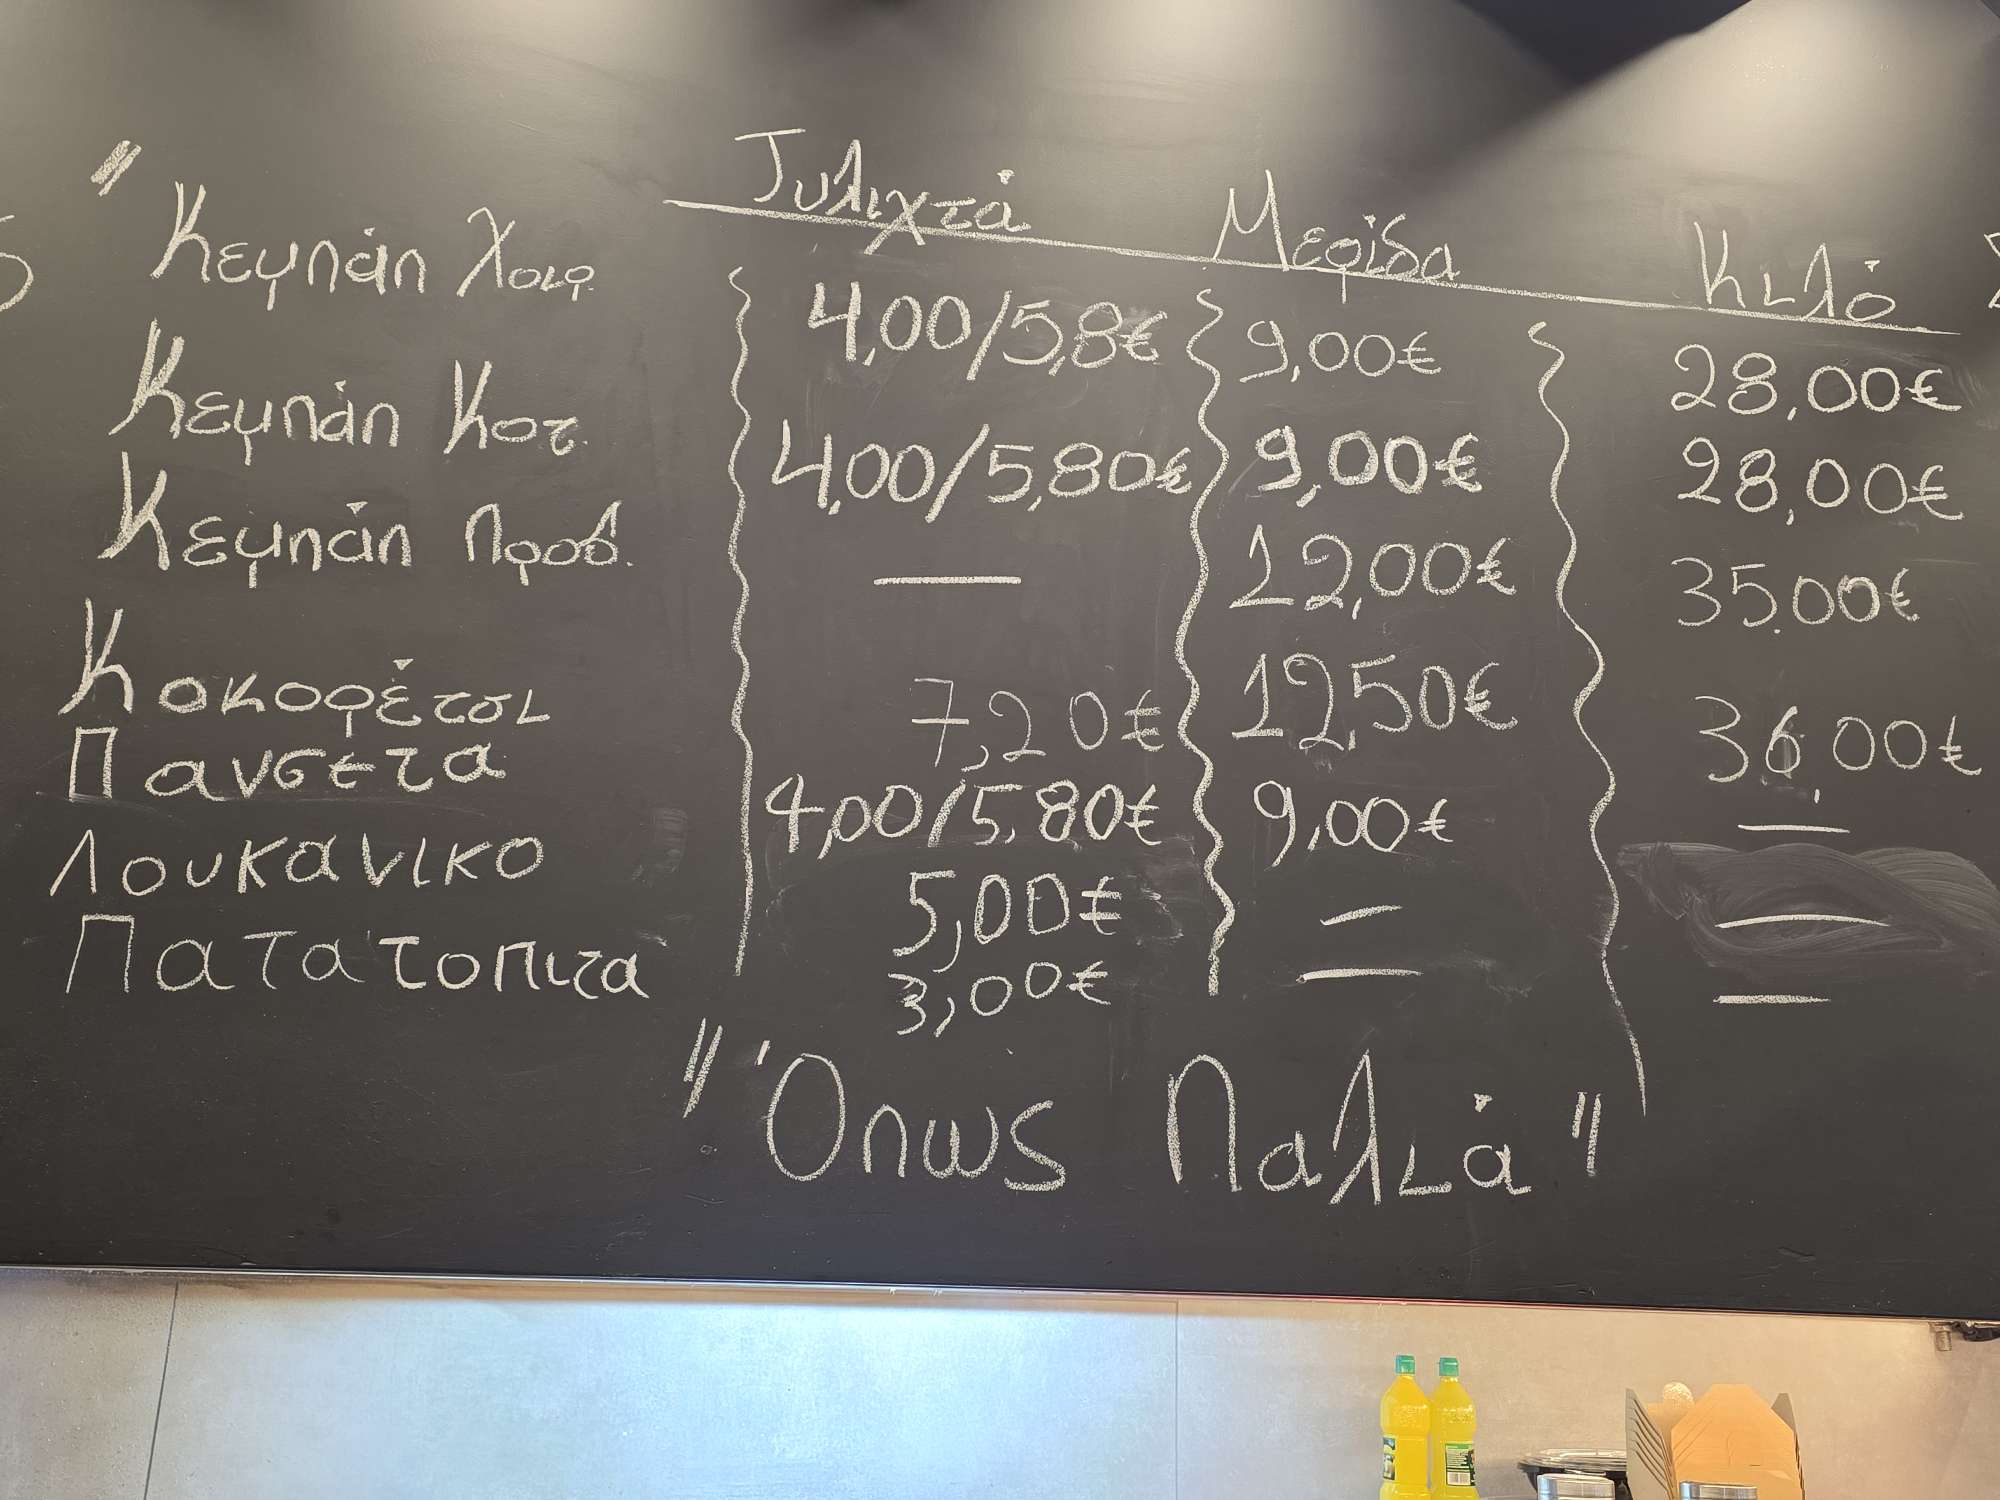 Τυλιχτά Μερίδα Κιλό
"Κεμπάπ Χοιρ. 4,00/5,8€ 9,00€ 28,00€
Κεμπάπ Κοτ. 4,00/5,80€ 9,00€ 28,00€
Κεμπάπ Προβ. — 12,00€ 35.00€
Κοκορέτσι 7,20€ 12,50€ 36,00€
Πανσετα 4,00/5.80€ 9,00€ —
Λουκανικο 5,00€ — —
Πατατοπιτα 3,00€ — —
"Όπως Παλιά"